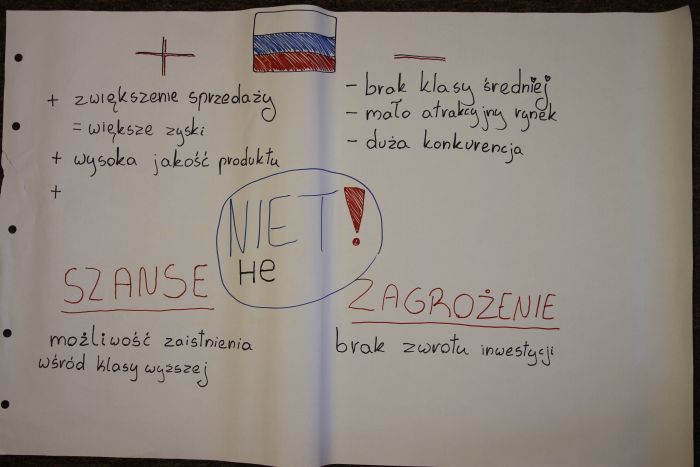 + zwiększenie sprzedaży
= większe zyski
+ wysoka jakość produktu
+
- brak klasy średniej
- mało atrakcyjny rynek
- duża konkurencja
NIET!
не
SZANSE
możliwość zaistnienia
wśród klasy wyższej
ZAGROŻENIE
brak zwrotu inwestycji